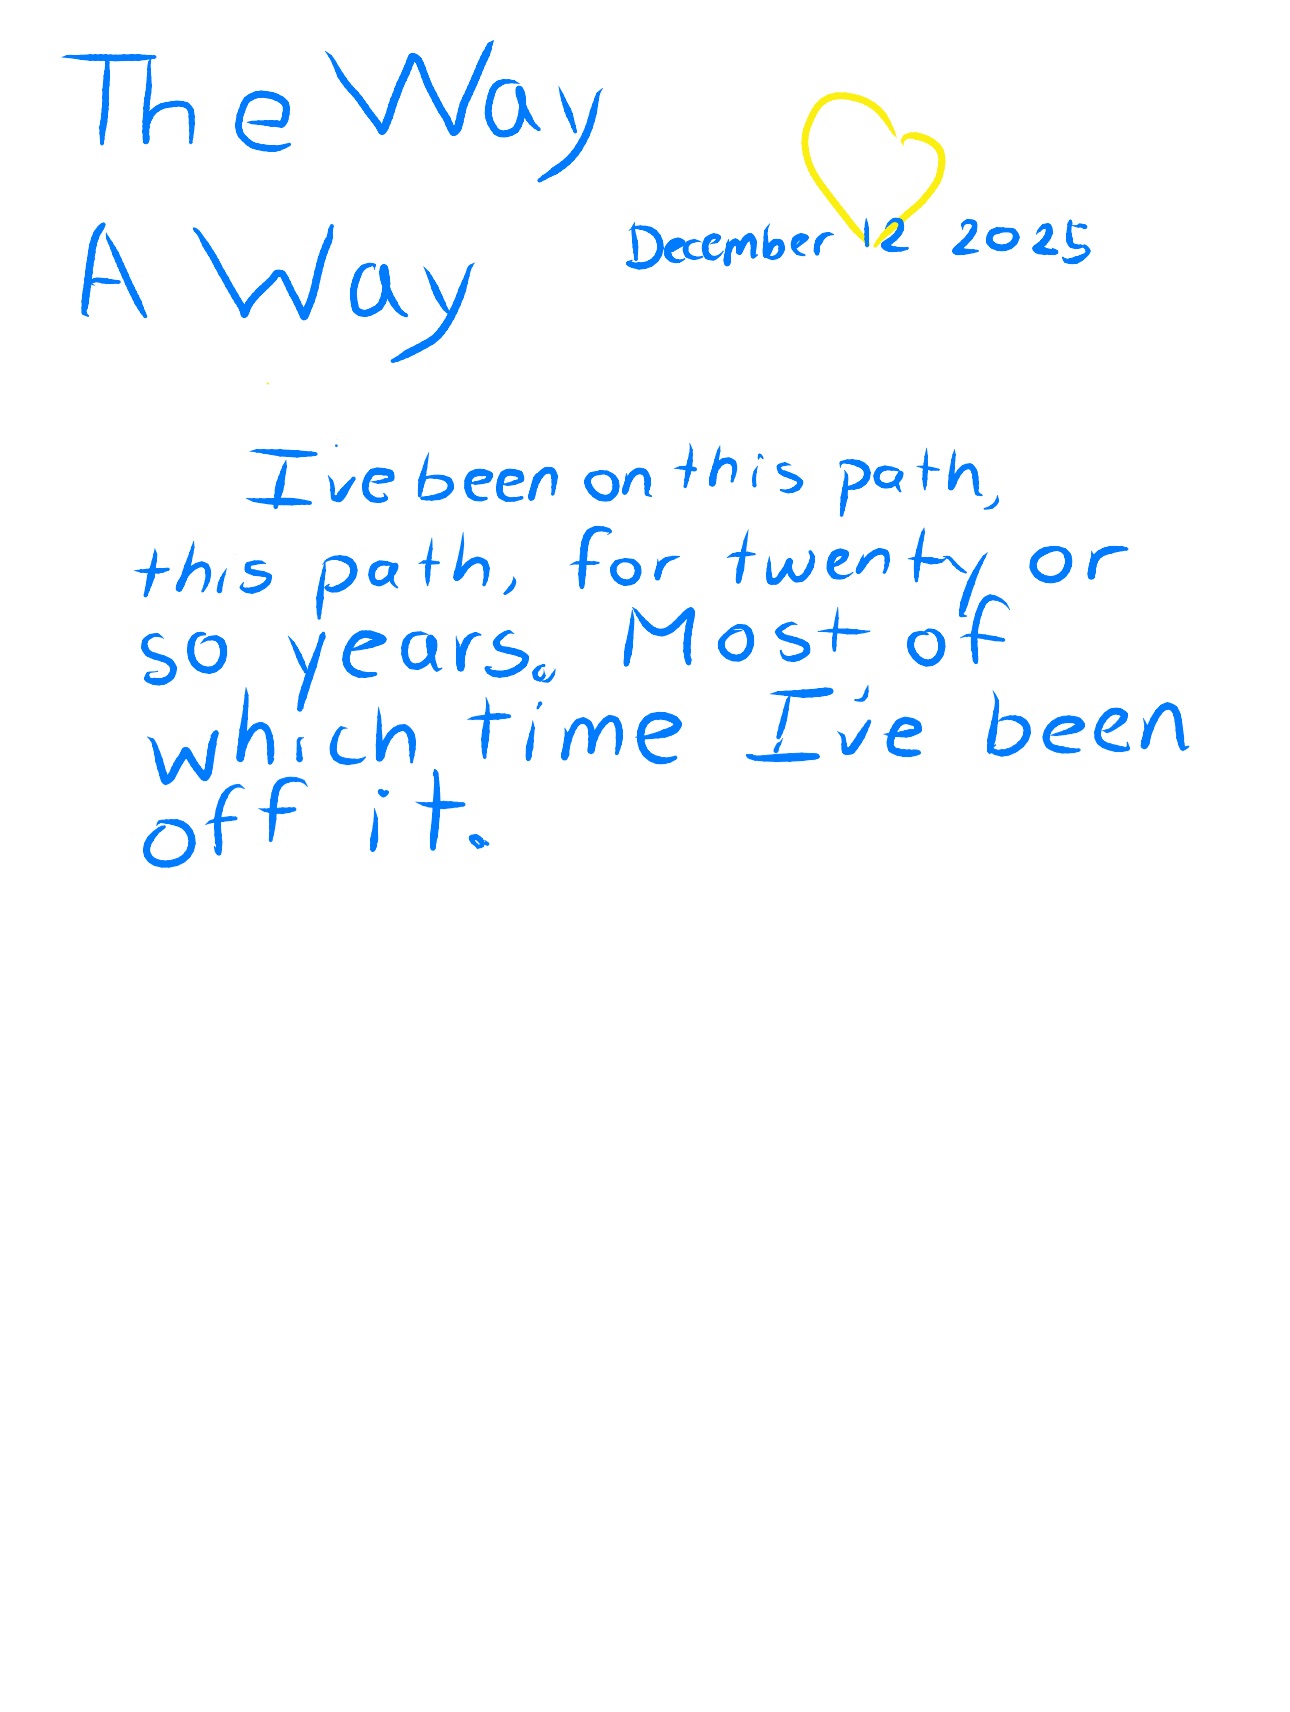 The Way
A Way
December 12 2025
I've been on this path,
this path, for twenty or
so years. Most of
which time I've been
off it.